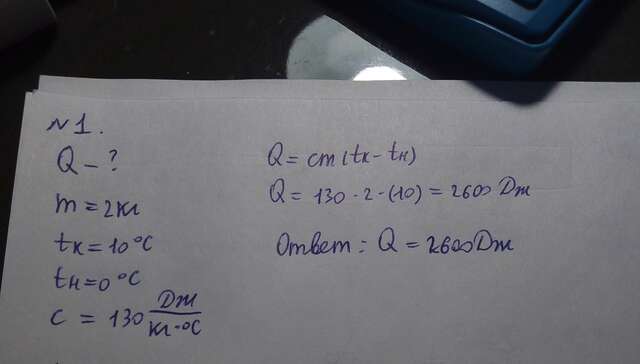 №1.
Q - ?
m = 2кг
tк = 10°C
tн = 0°C
c = 130 Дж/кг·°C
Q = cm(tк - tн)
Q = 130 · 2 · (10) = 2600 Дж
Ответ: Q = 2600 Дж